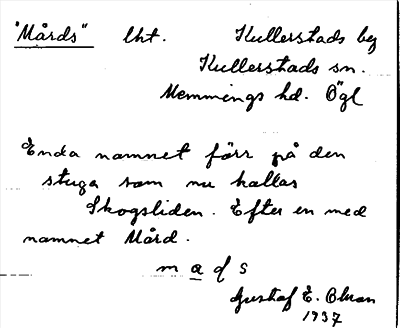 "Mårds" lht. Kullerstads bg
Kullerstads sn.
Memmings hd. Ögl
Enda namnet förr på den
stuga som nu kallas
Skogsliden. Efter en med
namnet Mård.
m a d s
Gustaf E.
1937